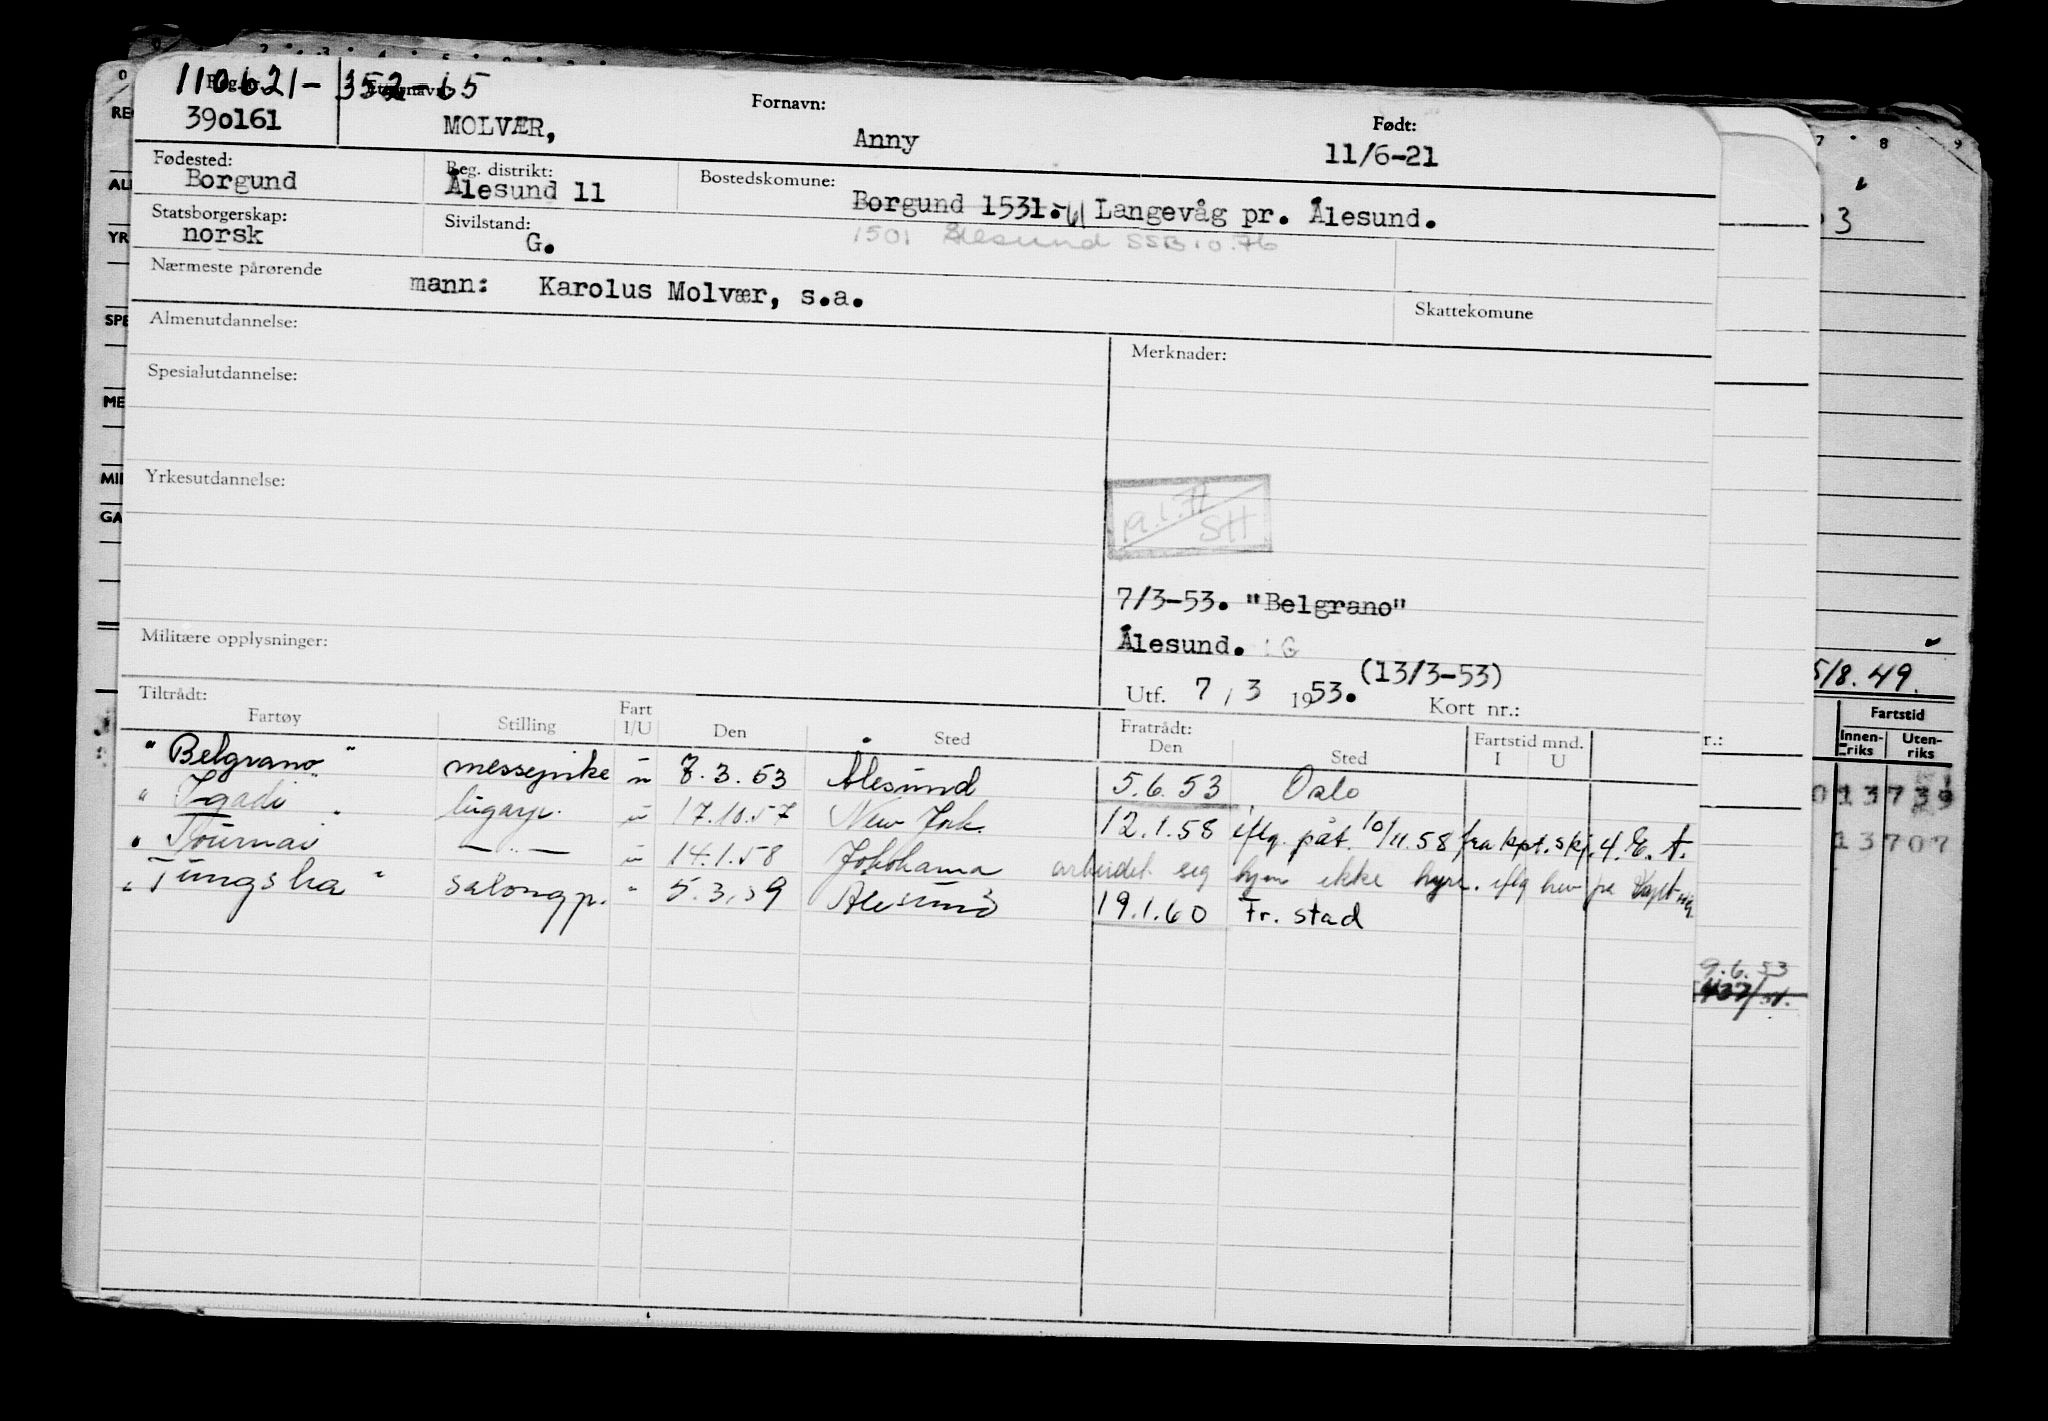 110621-352-65
Reg. nr. Etternavn: Fornavn: Født:
390161 MOLVÆR, Anny 11/6-21
Fødested: Reg. distrikt: Bostedskomune:
Borgund Ålesund 11 Borgund 1531. Langevåg pr. Ålesund.
Statsborgerskap: Sivilstand:
norsk G. 1501 Ålesund SSB 10.76
Nærmeste pårørende
mann: Karolus Molvær, s.a.
Skattekomune
Almenutdannelse:
Merknader:
Spesialutdannelse:
Yrkesutdannelse:
SH
7/3-53. "Belgrano"
Militære opplysninger:
Ålesund.
(13/3-53)
Utf. 7 / 3 1953. Kort nr.:
Tiltrådt: Fratrådt: Fartstid mnd.
Fartøy Stilling Fart I/U Den Sted Den Sted I U
"Belgrano" messepike u 7.3.53 Ålesund 5.6.53 Oslo
"Igadi" lugarp. u 17.10.57 New York. 12.1.58 iflg. påt. 10/11.58 fra kpt. skj. 4. E. A.
"Tournai — " — u 14.1.58 Jokohama arbeidet seg hjem ikke hyre. iflg brev fra kapt
"Tungsha" salongp. " 5.3.59 Ålesund 19.1.60 Fr. stad
3
5/8.49.
Fartstid
Innenriks Utenriks
r.:
013739
13707
9.6.53